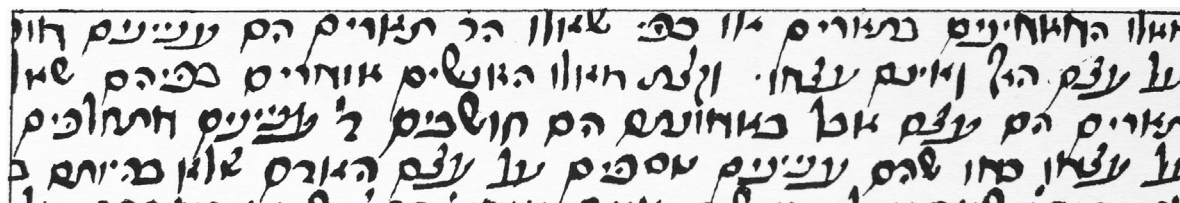 מאלו המאמינים בתארים או כפי שאלו הד תארים הם עניינים
על עצם האל ואינם עצמו. וקצת מאלו האנשים אומרים בפיהם
תארים הם עצם אבל באמונתם הם חושבים ד' עניינים מתחלפים
על עצמו כמו שהם עניינים נוספים על עצם האדם שלא בהיותם